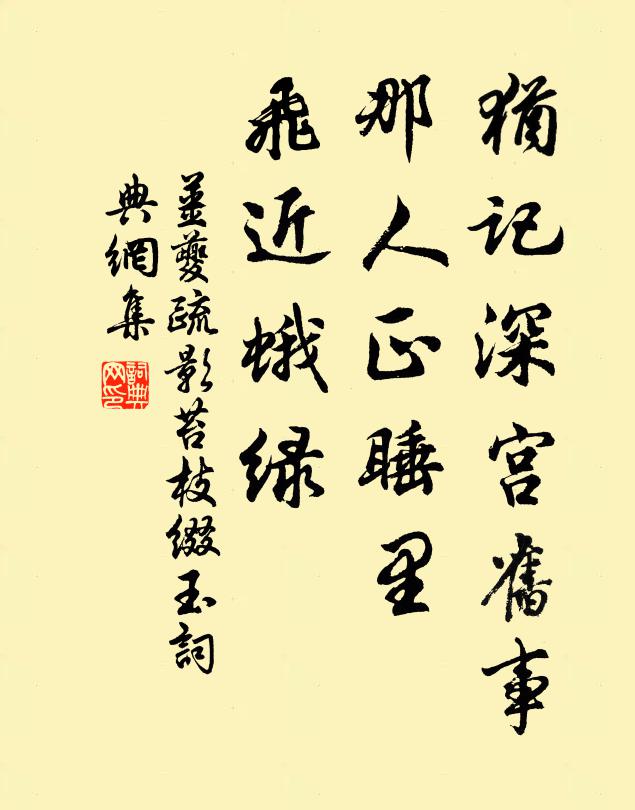 猶記深宮舊事
那人正睡里
飛近蛾綠
薑夔疏影苔枝綴玉詞
典網集
詞典網印